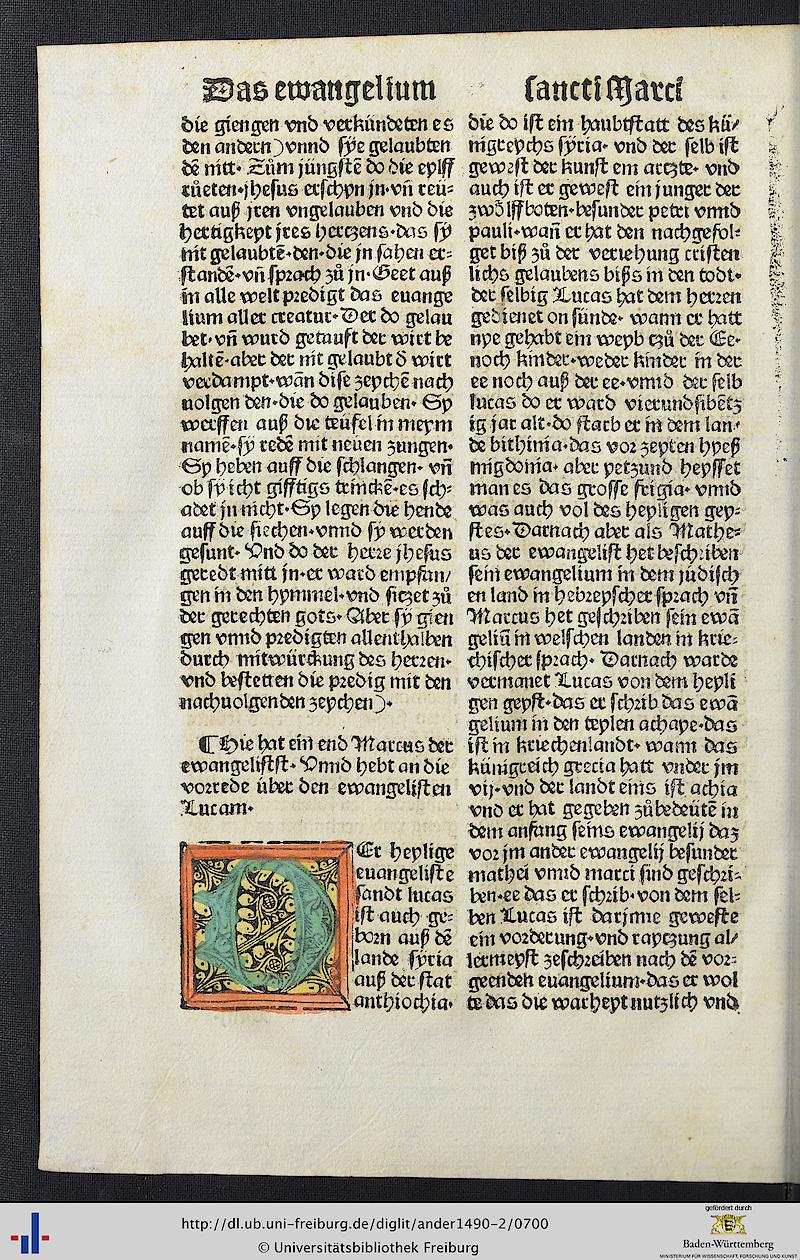 Das ewangelium sancti Marci
die giengen vnd verkündeten es
den andern) vnnd sye gelaubten
dē nitt. Zům jüngstē do die eylff
rüeten. jhesus erschyn jn. vn̄ reü⸗
tet auß jren vngelauben vnd die
hertigkeyt jres hertzens. das sy
nit gelaubtē. den. die jn sahen er⸗
standē. vn̄ sprach zů jn. Geet auß
in alle welt predigt das euange
lium aller creatur. Der do gelau
bet. vn̄ wurd getauft der wirt be
haltē. aber der nit gelaubt d̄ wirt
verdampt. wān dise zeychē nach
uolgen den. die do gelauben. Sy
werffen auß die teüfel in meym
namē. sy redē mit neüen zungen.
Sy heben auff die schlangen. vn̄
ob sy icht gifftigs trinckē. es sch⸗
adet jn nicht. Sy legen die hende
auff die siechen. vnnd sy werden
gesunt. Vnd do der herre jhesus
geredt mitt jn. er ward empfan/
gen in den hymmel. vnd sitzet zů
der gerechten gots. Aber sy gien
gen vnnd predigten allenthalben
durch mitwürckung des herren.
vnd bestetten die predig mit den
nachuolgenden zeychen).
¶ Hie hat ein end Marcus der
ewangelistst. Vnnd hebt an die
vorrede über den ewangelisten
Lucam.
DEr heylige
euangeliste
sandt lucas
ist auch ge⸗
born auß dē
lande syria
auß der stat
anthiochia.
die do ist ein haubtstatt des kü/
nigreychs syria. vnd der selb ist
gewest der kunst ein artzte. vnd
auch ist er gewest ein junger der
zwölffboten. besunder petri vnnd
pauli. wan̄ er hat den nachgefol⸗
get biß zů der veriehung cristen
lichs gelaubens biß in den todt.
der selbig Lucas hat dem herren
gedienet on sünde. wann er hatt
nye gehabt ein weyb tzů der Ee.
noch kinder. weder kinder in der
ee noch auß der ee. vnnd der selb
lucas do er ward vierundsibētz
ig jar alt. do starb er in dem lan⸗
de bithinia. das vor zeyten hyeß
migdonia. aber yetzund heysset
man es das grosse frigia. vnnd
was auch vol des heyligen gey⸗
stes. Darnach aber als Mathe⸗
us der ewangelist het beschriben
sein ewangelium in dem jüdisch
en land in hebreyscher sprach vn̄
Marcus het geschriben sein ewā
geliū in welschen landen in krie⸗
chischer sprach. Darnach warde
vermanet Lucas von dem heyli
gen geyst. das er schrib das ewā
gelium in den teylen achaye. das
ist in kriechenlandt. wann das
künigreich grecia hatt vnder jm
vij. vnd der landt eins ist achia
vnd er hat gegeben zůbedeütē in
dem anfang seins ewangelij daz
vor jm ander ewangelij besunder
mathei vnnd marci sind geschri⸗
ben. ee das er schrib. von dem sel⸗
ben Lucas ist darjnne geweste
ein vorderung. vnd raytzung al/
lermeyst zeschreiben nach dē vor⸗
geenden euangelium. das er wol
te das die warheyt nutzlich vnd
http://dl.ub.uni-freiburg.de/diglit/ander1490-2/0700
© Universitätsbibliothek Freiburg
gefördert durch
Baden-Württemberg
MINISTERIUM FÜR WISSENSCHAFT, FORSCHUNG UND KUNST